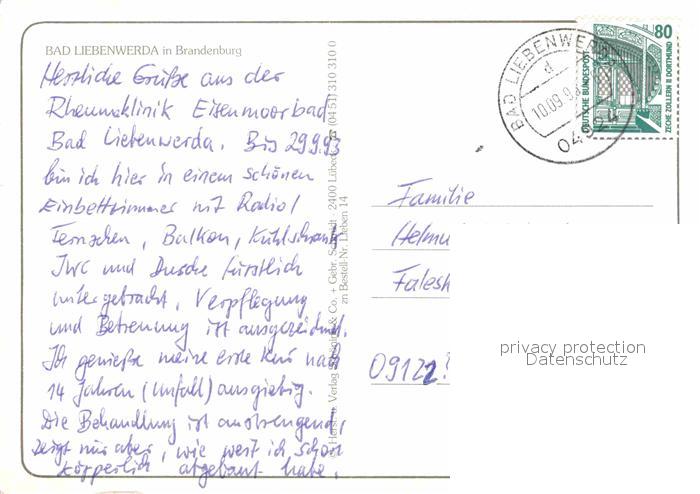 BAD LIEBENWERDA in Brandenburg
Herzliche Grüße aus der
Rheumaklinik Eisenmoorbad
Bad Liebenwerda. Bis 29.9.93
bin ich hier in einem schönen
Einbettzimmer mit Radio/
Fernsehen, Balkon, Kühlschrank
IWC und Dusche fürstlich
untergebracht, Verpflegung
und Betreuung ist ausgezeichnet.
Ich genieße meine erste Kur nach
14 Jahren (Unfall) ausgiebig.
Die Behandlung ist anstrengend,
zeigt mir aber, wie weit ich schon
körperlich abgebaut habe.
& Co. + Gebr. Schmidt · 2400 Lübeck · (04 51) 310 310 0
zu Bestell-Nr. Lieben 14
BAD LIEBENWERDA
d
10.09.9
04924
80
DEUTSCHE BUNDESPOST
ZECHE ZOLLERN II DORTMUND
Familie
Helmu
Falesh
09122
privacy protection
Datenschutz